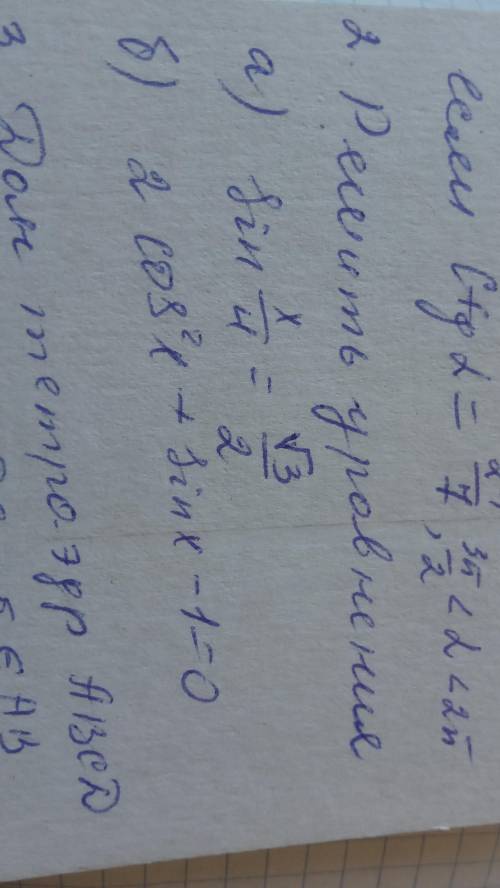 если Ctg α = 2/7, 3π/2 < α < 2π
2. Решить уравнения
а) sin x/4 = √3/2
б) 2 cos²x + sin x - 1 = 0
3 Дан тетраэдр ABCD
∈ AB